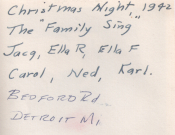 Christmas Night, 1942
The "Family Sing"
Jacq, Ella R, Ella F
Carol, Ned, Karl.
BEDFORD Rd
DETROIT MI